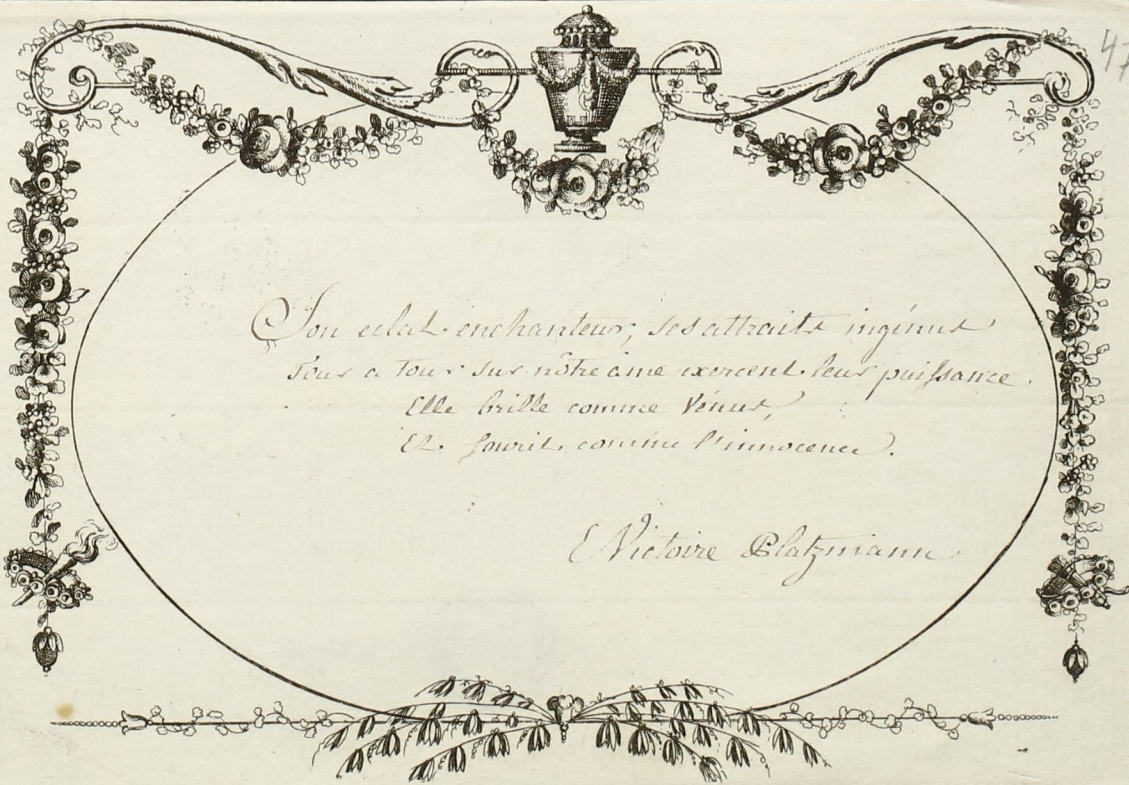 47
Son eclat enchanteur, ses attraits ingénus
Tour a tour sur nôtre âme exercent leur puissance.
Elle brille comme Vénus,
Et sourit comme l'innocence.
Victoire Platzmann